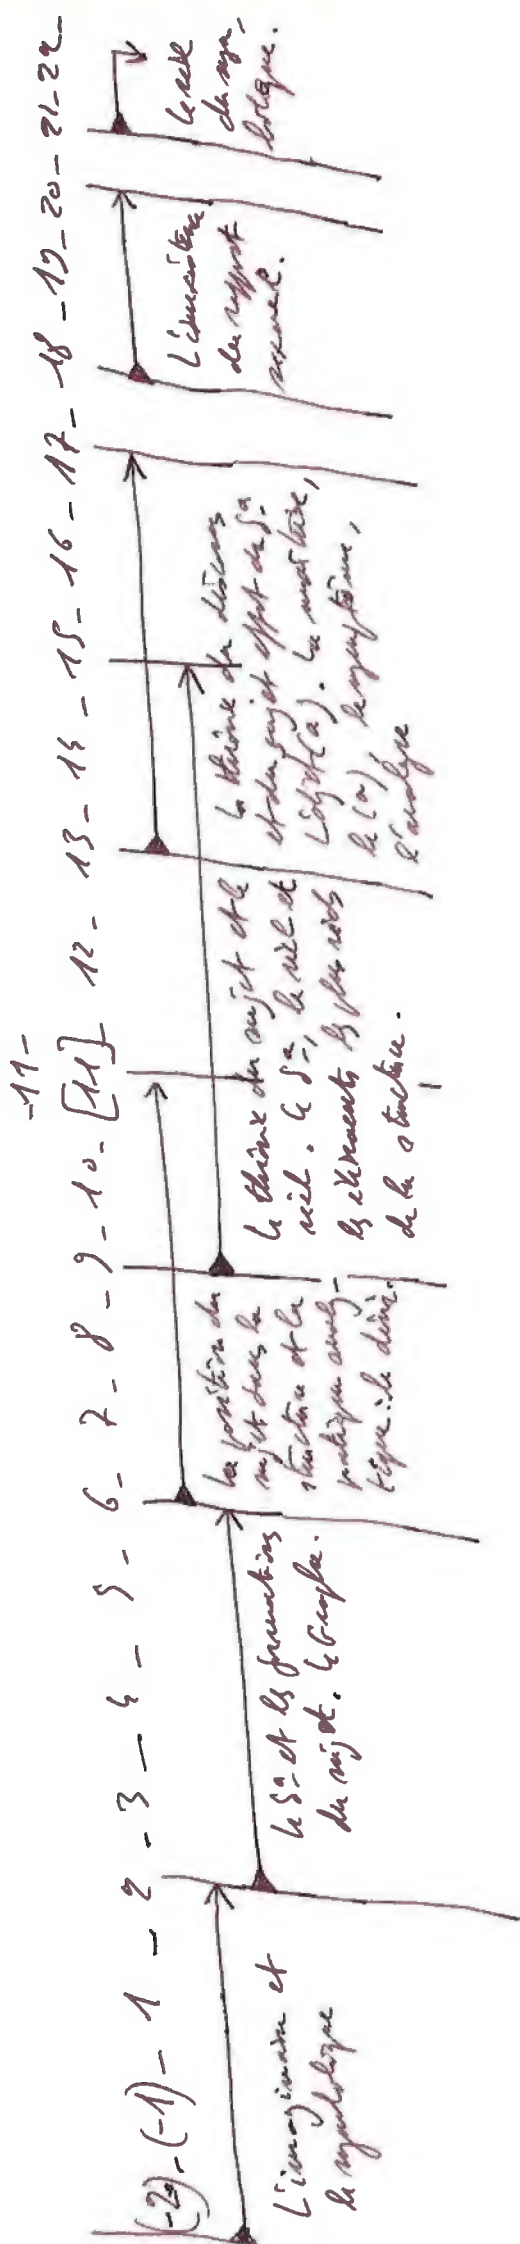 -11-
(-2) - (-1) - 1 - 2 - 3 - 4 - 5 - 6 - 7 - 8 - 9 - 10 - [11] 12 - 13 - 14 - 15 - 16 - 17 - 18 - 19 - 20 - 21 - 22 -
L'imaginaire et
le symbolique
le Sa et les formations
du sujet. le Graphe.
La position du
sujet dans la
structure et la
pratique analy-
tique: le désir.
la théorie du sujet et le
réel. le Sa, le réel et
les éléments les plus réels
de la structure.
la théorie du discours
et du sujet effet du Sa
L'objet (a). La
le (a), le symptôme,
l'analyse
L'inexistence
du rapport
sexuel.
le réel
du sym-
bolique.